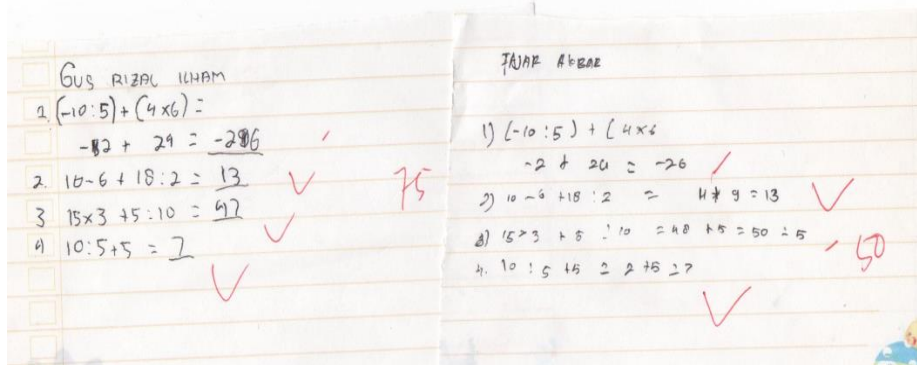 GUS RIZAL ILHAM
1. (-10:5) + (4x6) =
-2 + 24 = -26
2. 10-6 + 18:2 = 13
3 15x3 +5:10 = 47
4 10:5+5 = 7
75
FAJAR AKBAR
1) (-10:5) + (4x6
-2 + 24 = -26
2) 10-6 +18:2 = 4+ 9 = 13
3) 15x3 + 5 : 10 = 45 +5 = 50 = 5
4. 10 : 5 +5 = 2+5 = 7
50